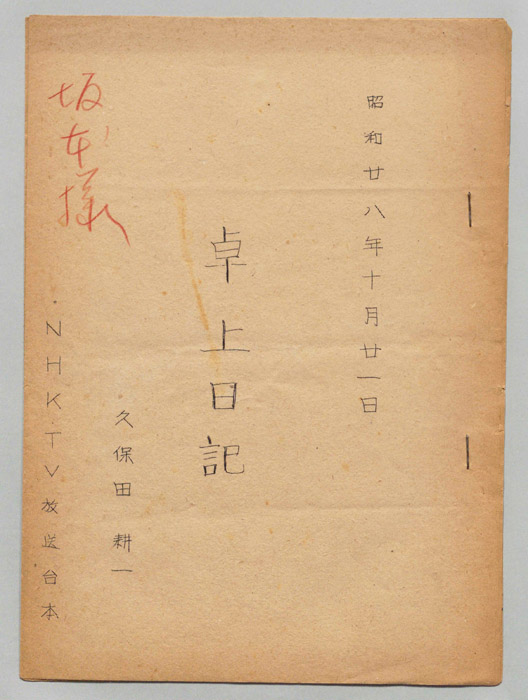 昭和廿八年十月廿一日
卓上日記
久保田耕一
坂本様
・NHK・TV放送台本